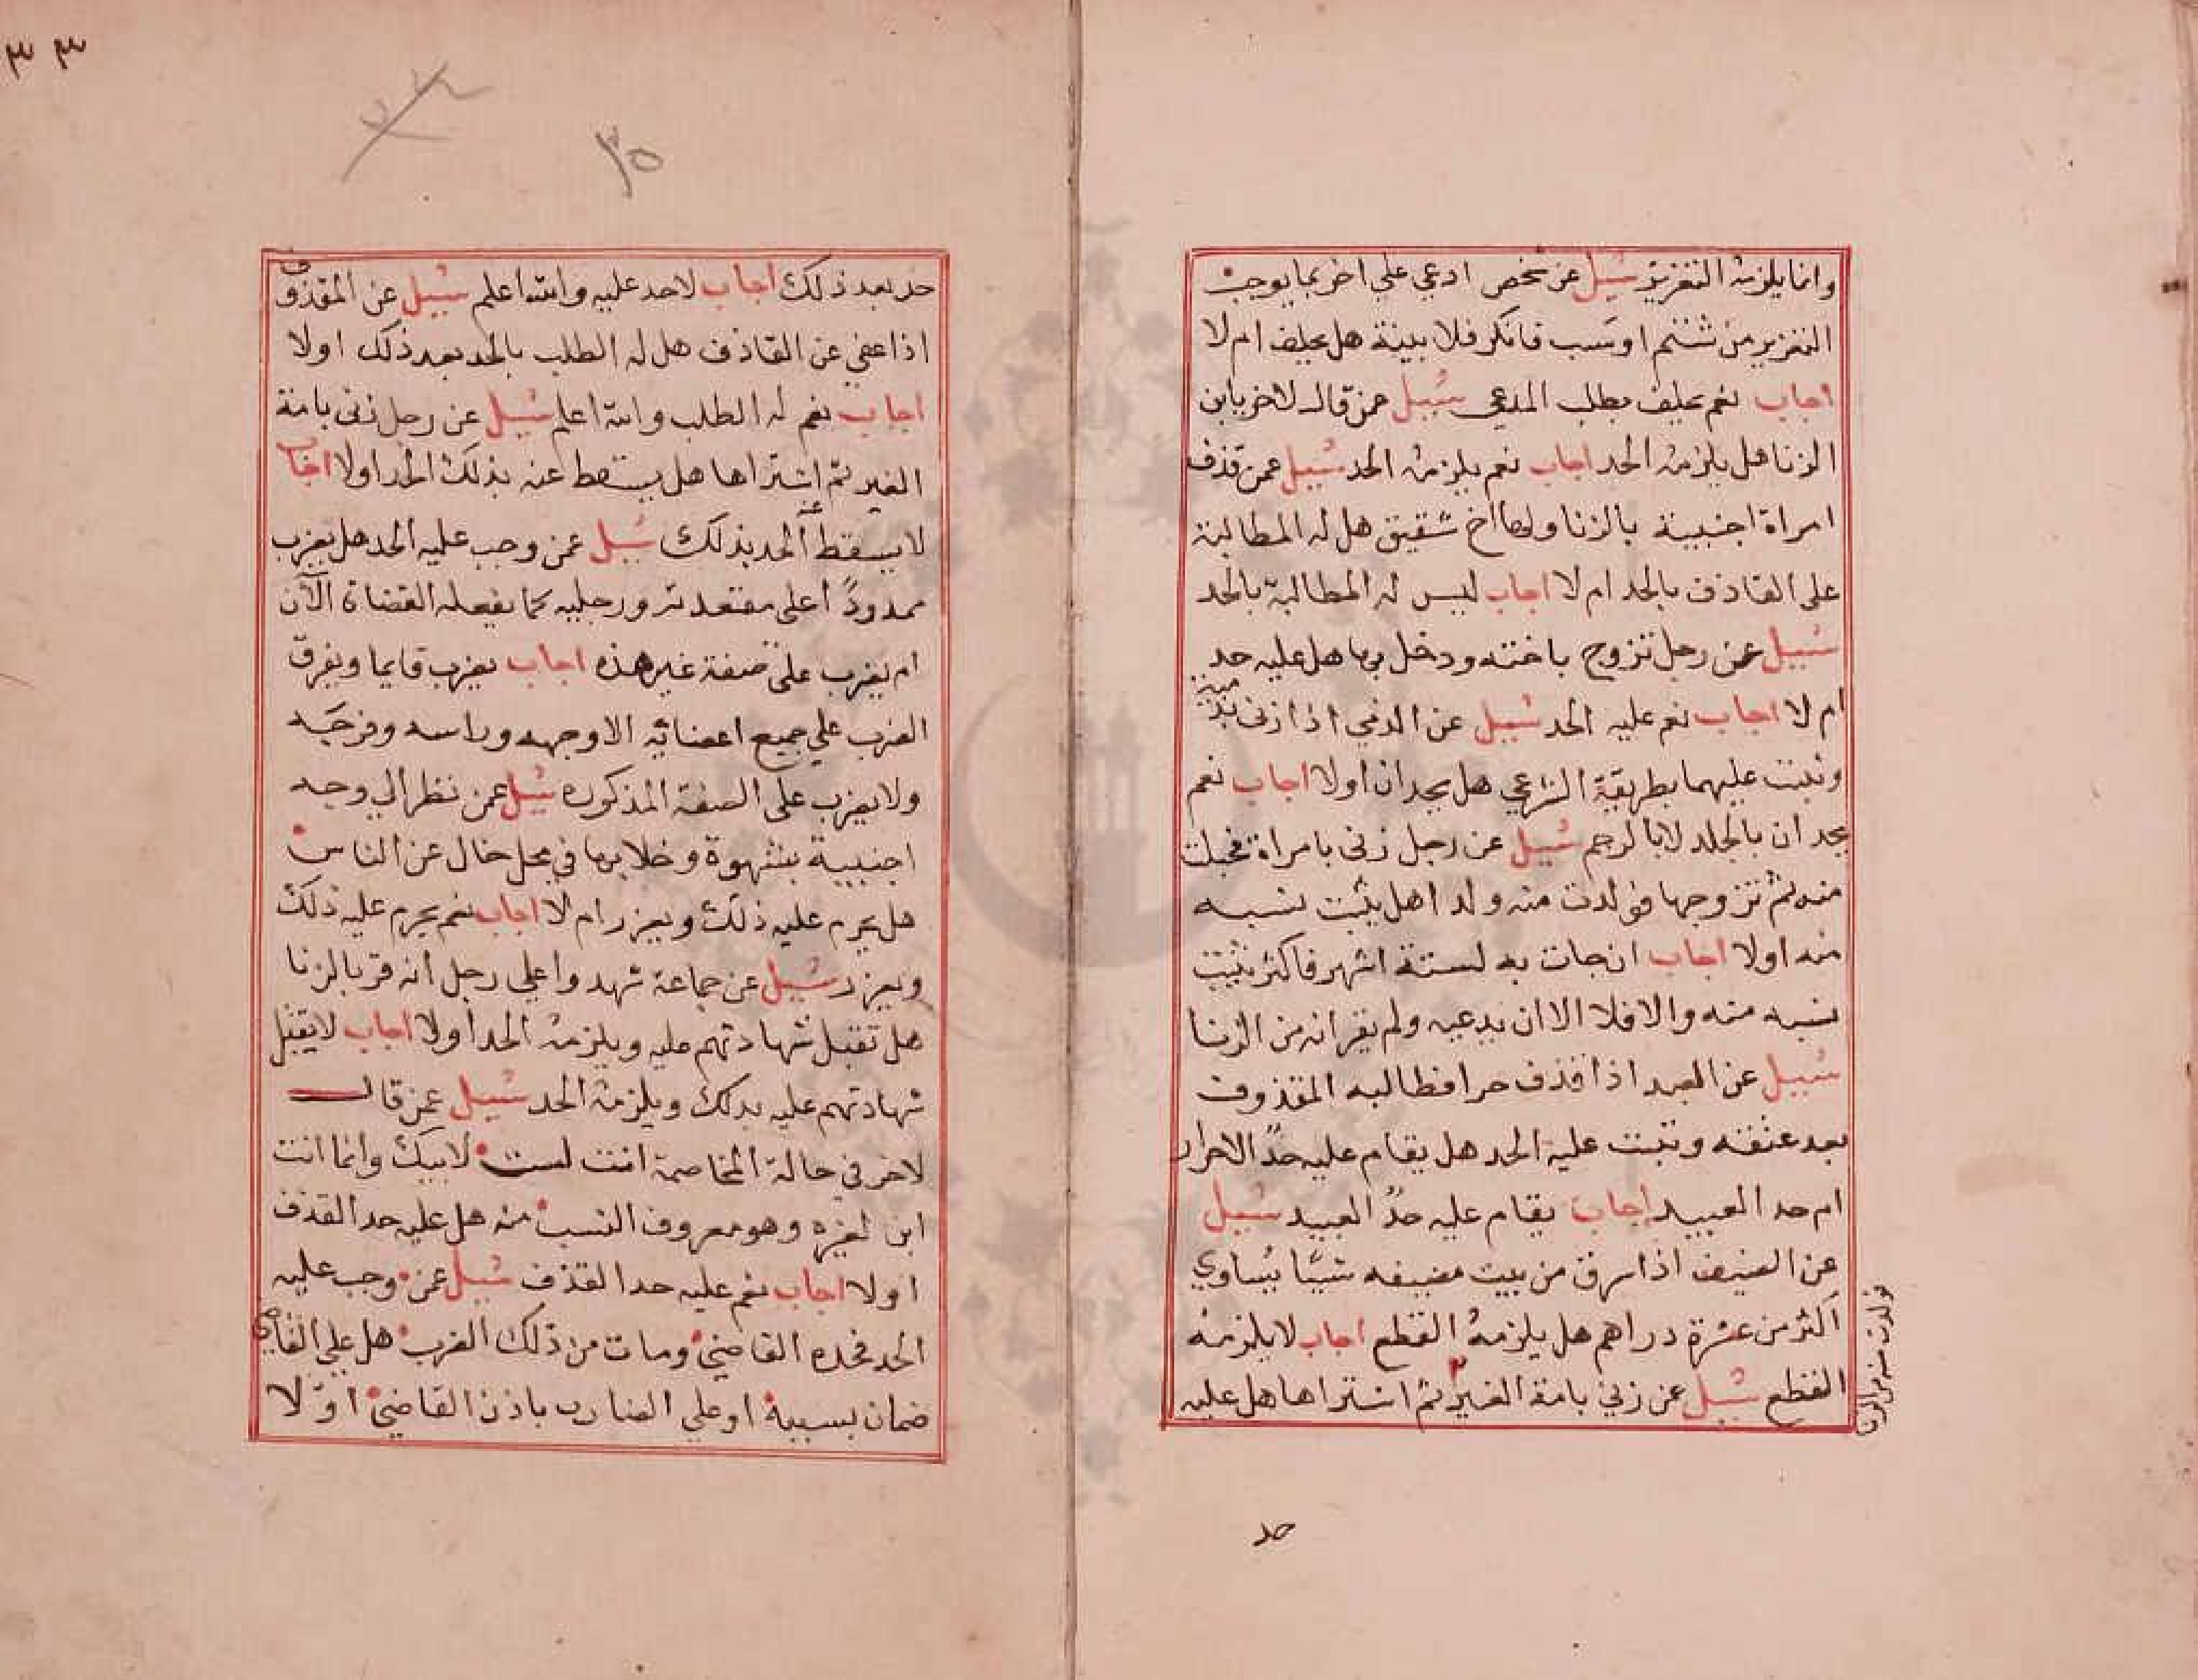 وانما يلزمه التعزير سُيل عن شخص ادعي علي اخر بما يوجب
التعزير من شتم او سَب فانكر فلا بينة هل يحلف ام لا
اجاب نعم يحلف بطلب المدعي سُيل عمن قال لاخر يا ابن
الزنا هل يلزمه الحد اجاب نعم يلزمه الحد سُيل عمن قذف
امراة اجنبية بالزنا ولها اخ شقيق هل له المطالبة
على القاذف بالحد ام لا اجاب ليس له المطالبة بالحد
سُيل عن رجل تزوج باخته ودخل بها هل عليه حد
ام لا اجاب نعم عليه الحد سُيل عن الذمي اذا زنى بذمية
وثبت عليهما بطريقة الشرعي هل يحدان اولا اجاب نعم
يحدان بالجلد لا بالرجم سُيل عن رجل زنى بامراة فحبلت
منه ثم تزوجها فولدت منه ولدا هل يثبت نسبه
منه اولا اجاب ان جات به لستة اشهر فاكثر يثبت
نسبه منه والا فلا الا ان يدعيه ولم يقر انه من الزنا
سُيل عن العبد اذا قذف حرا فطالبه المقذوف
بعد عتقه وثبت عليه الحد هل يقام عليه حدّ الاحرار
ام حد العبيد اجاب يقام عليه حدُّ العبيد سُيل
عن الضيف اذا سرق من بيت مضيفه شيئا يُساوي
اكثر من عشرة دراهم هل يلزمهُ القطع اجاب لا يلزمه
القطع سُيل عن زني بامة الغير ثم اشتراها هل عليه
حد
٣٣
٣٥
حد بعد ذلك اجاب لا حد عليه والله اعلم سُيل عن المقذوف
اذا عفي عن القاذف هل له الطلب بالحد بعد ذلك اولا
اجاب نعم له الطلب والله اعلم سُيل عن رجل زنى بامة
الغير ثم اشتراها هل يسقط عنه بذلك الحد اولا اجاب
لا يسقط عنه الحد بذلك سُيل عمن وجب عليه الحد هل يضرب
ممدودًا على مقعدته ورجليه كما يفعله القضاة الآن
ام يضرب على صفة غير هذه اجاب يضرب قايما ويفرق
الضرب علي جميع اعضائه الا وجهه وراسه وفرجَه
ولا يضرب على الصفة المذكورة سُيل عمن نظر الي وجه
اجنبية بشهوة وخلا بها في محل خال عن الناس
هل يحرم عليه ذلك ويعزر ام لا اجاب نعم يحرم عليه ذلك
ويعزر سُيل عن جماعة شهدوا علي رجل انه قر بالزنا
هل تقبل شهادتهم عليه ويلزمه الحد اولا اجاب لا يقبل
شهادتهم عليه بدلك ويلزمه الحد سُيل عمن قال
لاخر في حالة المخاصمة انت لست لابيك وانما انت
ابن لغيره وهو معروف النسب منه هل عليه حد القذف
اولا اجاب نعم عليه حد القذف سُيل عمن وجب عليه
الحد فحده القاضي ومات من ذلك الضرب هل علي القاضي
ضمان بسببه او علي الضارب باذن القاضي اوّلا